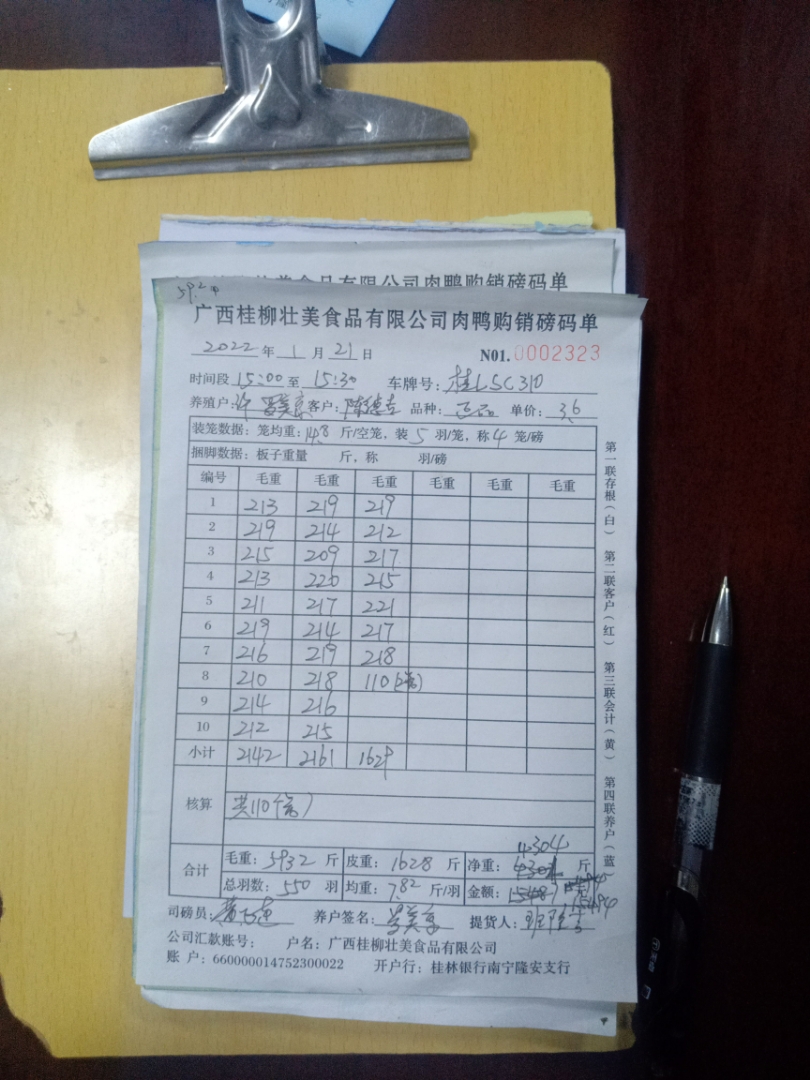 美食品有限公司肉鸭购销磅码单
广西桂柳壮美食品有限公司肉鸭购销磅码单
2022 年 1 月 21 日 N01. 0002323
时间段 15:00 至 15:30 车牌号: 桂L5C310
养殖户: 许 客户: 品种: 正品 单价: 3.6
装笼数据: 笼均重: 14.8 斤/空笼, 装 5 羽/笼, 称 4 笼/磅
捆脚数据: 板子重量 斤, 称 羽/磅
编号 毛重 毛重 毛重 毛重 毛重 毛重
1 213 219 219
2 219 214 212
3 215 209 217
4 213 220 215
5 211 217 221
6 219 214 217
7 216 219 218
8 210 218 110
9 214 216
10 212 215
小计 2142 2161 1629
核算 共110个笼
4304
合计 毛重: 5932 斤 皮重: 1628 斤 净重: 斤
总羽数: 550 羽 均重: 7.82 斤/羽 金额:
15494
司磅员: 养户签名: 提货人:
公司汇款账号: 户名: 广西桂柳壮美食品有限公司
账 户: 660000014752300022 开户行: 桂林银行南宁隆安支行
第一联存根(白) 第二联客户(红) 第三联会计(黄) 第四联养户(蓝